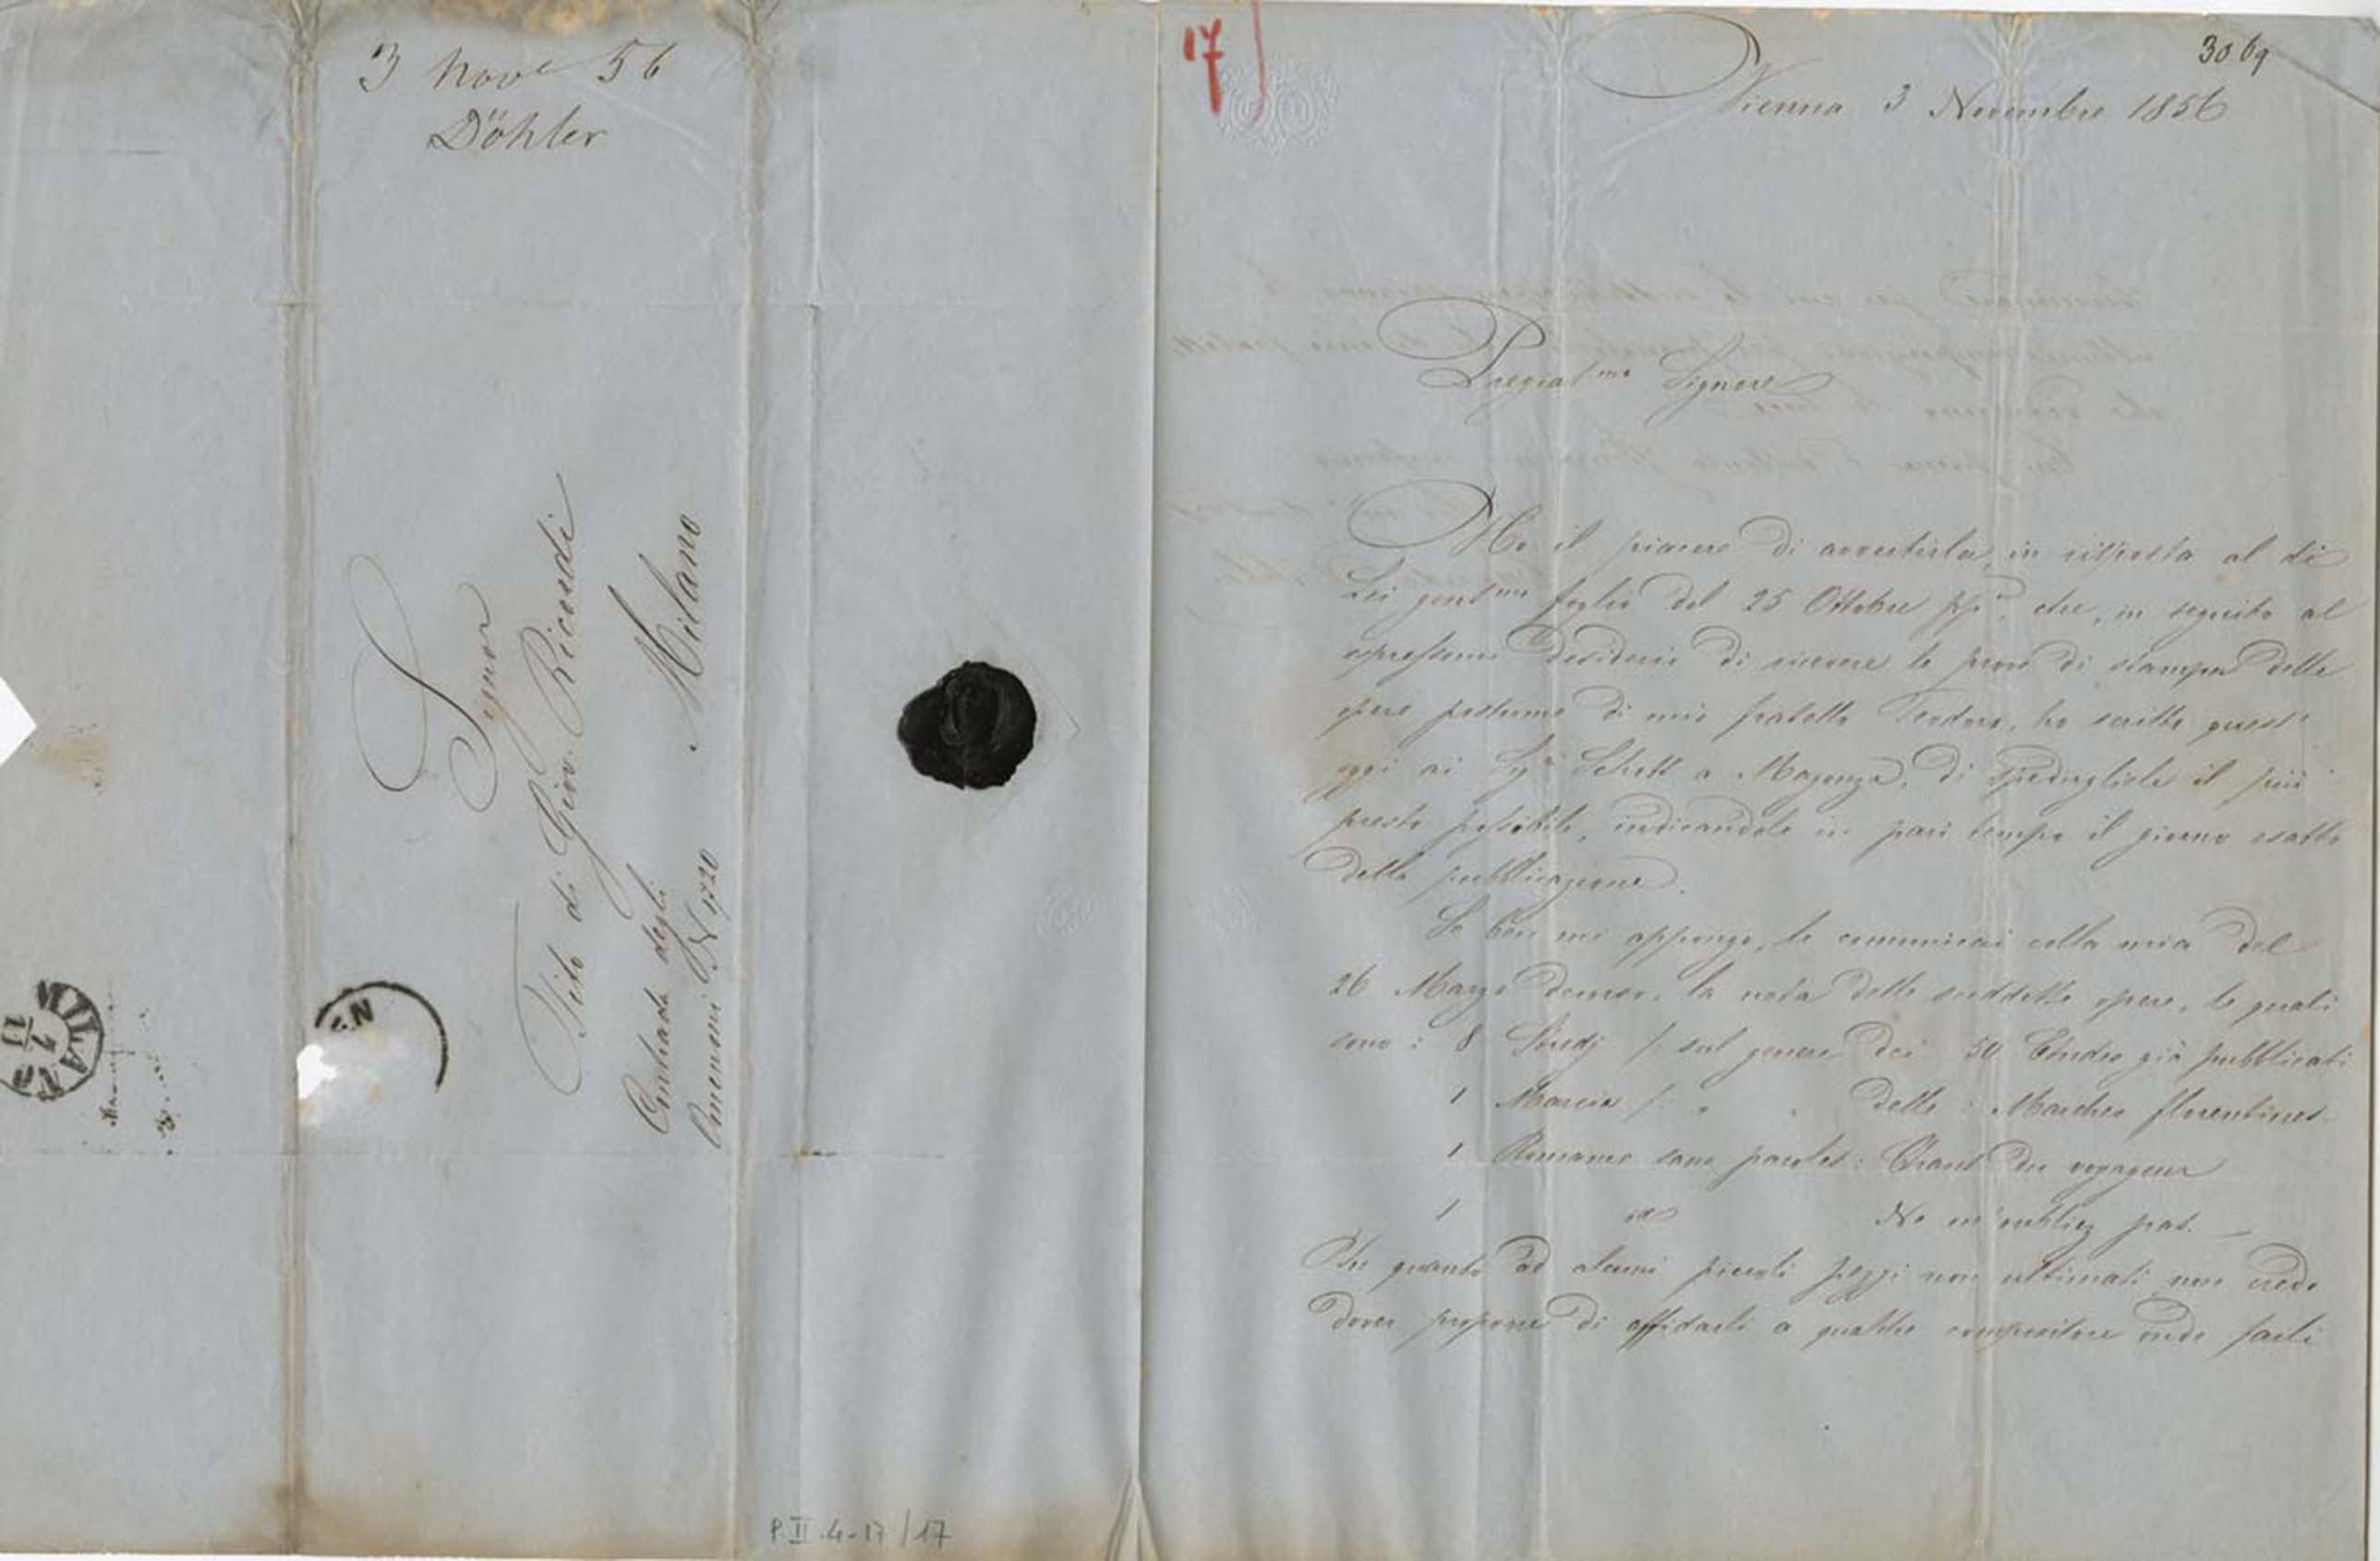 3 Nove 56
Döhler
Signor
Tito di Giov. Ricordi
Contrada degli
Omenoni N 1720
Milano
MILANO
7
11
EN
P. II 4-17/17
17
3069
Vienna 3 Novembre 1856
Pregiatmo Signore
Ho il piacere di avvertirla, in risposta al di
Lei gentmo foglio del 25 Ottobre pp°, che, in seguito al
espressomi desiderio di ricevere le prove di stampa delle
opere postume di mio fratello Teodoro, ho scritto quest'
oggi ai Sigi Schott a Magonza, di spedirgliele il più
presto possibile, indicandole in pari tempo il giorno esatto
della pubblicazione.
Se ben mi appongo, le comunicai colla mia del
26 Marzo decorso, la nota delle suddette opere, le quali
sono: 8 Studj /: sul genere dei 50 Etudes già pubblicati
1 Marcia /: " " della: Marches florentines
1 Romance sans paroles: Chant du voyageur
1 id Ne m'oubliez pas. —
In quanto ad alcuni piccoli pezzi non ultimati, non credo
dover proporre di affidarli a qualche compositore onde farli